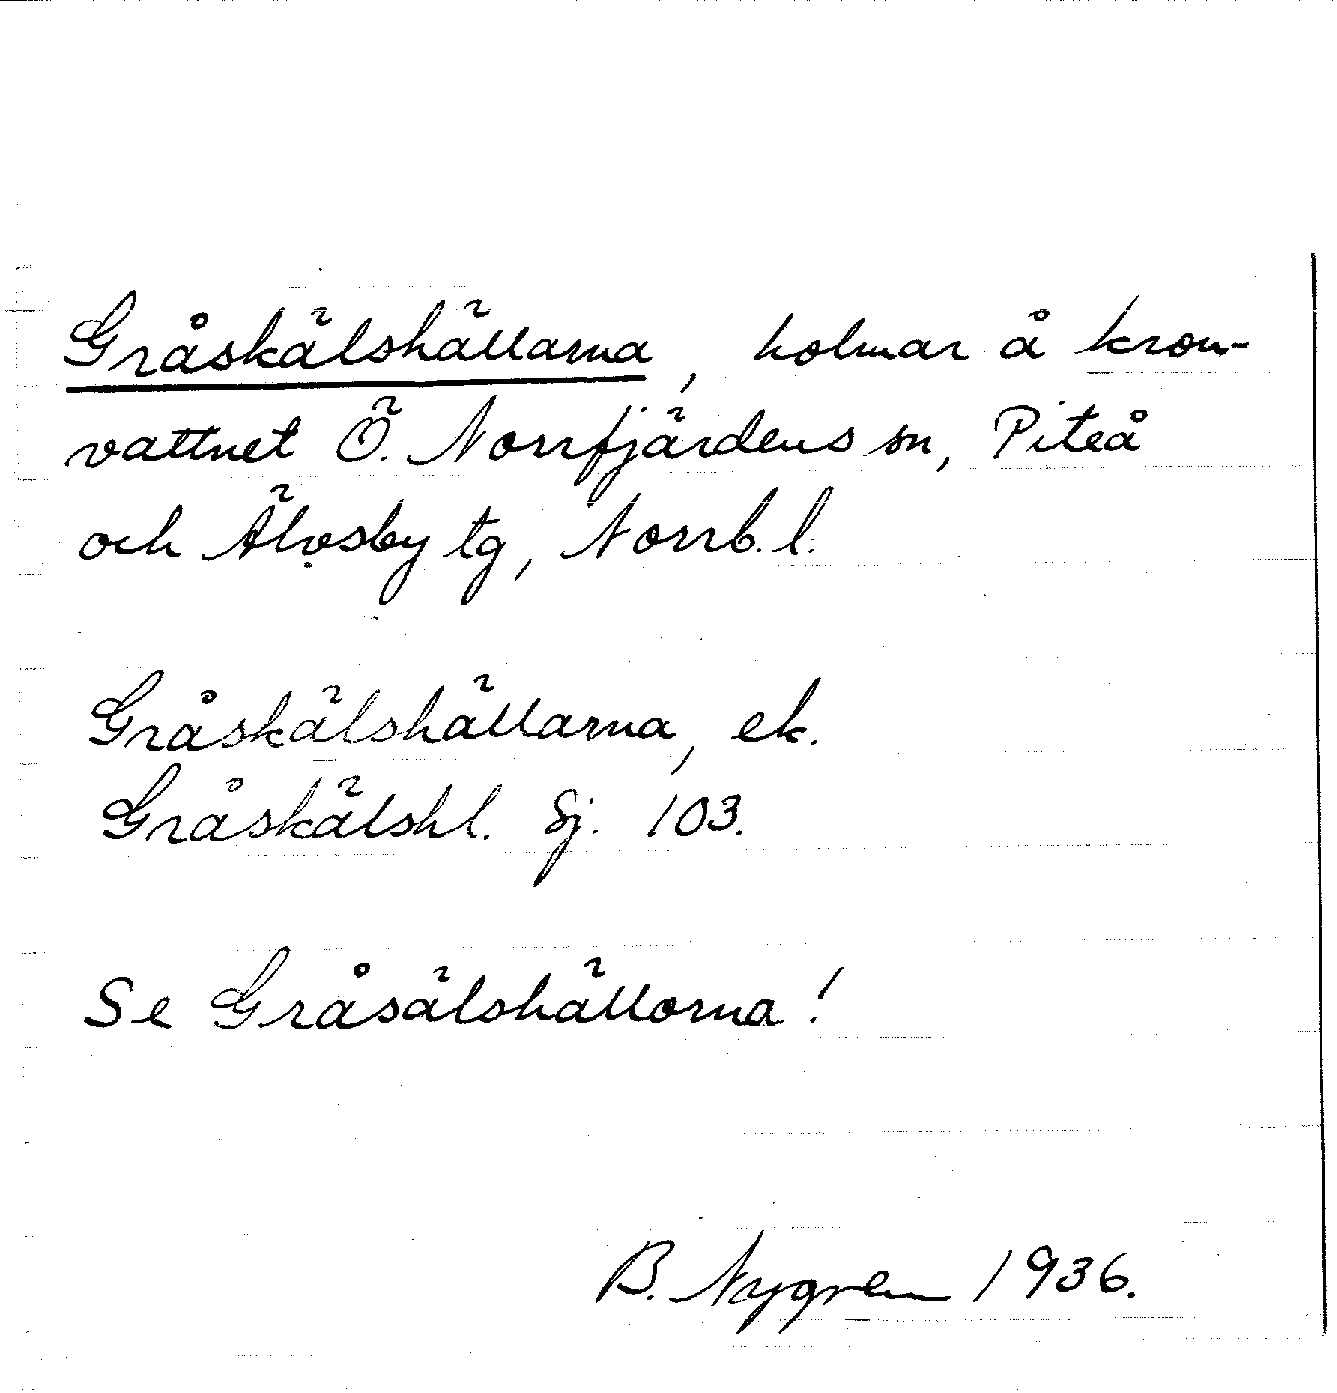 Gråskälshällarna, holmar å kron-
vattnet Ö. Norrfjärdens sn, Piteå
och Älvsby tg, Norrb. l.
Gråskälshällarna, ek.
Gråskälshl. Sj. 103.
Se Gråsälshällorna!
B. Nygren 1936.